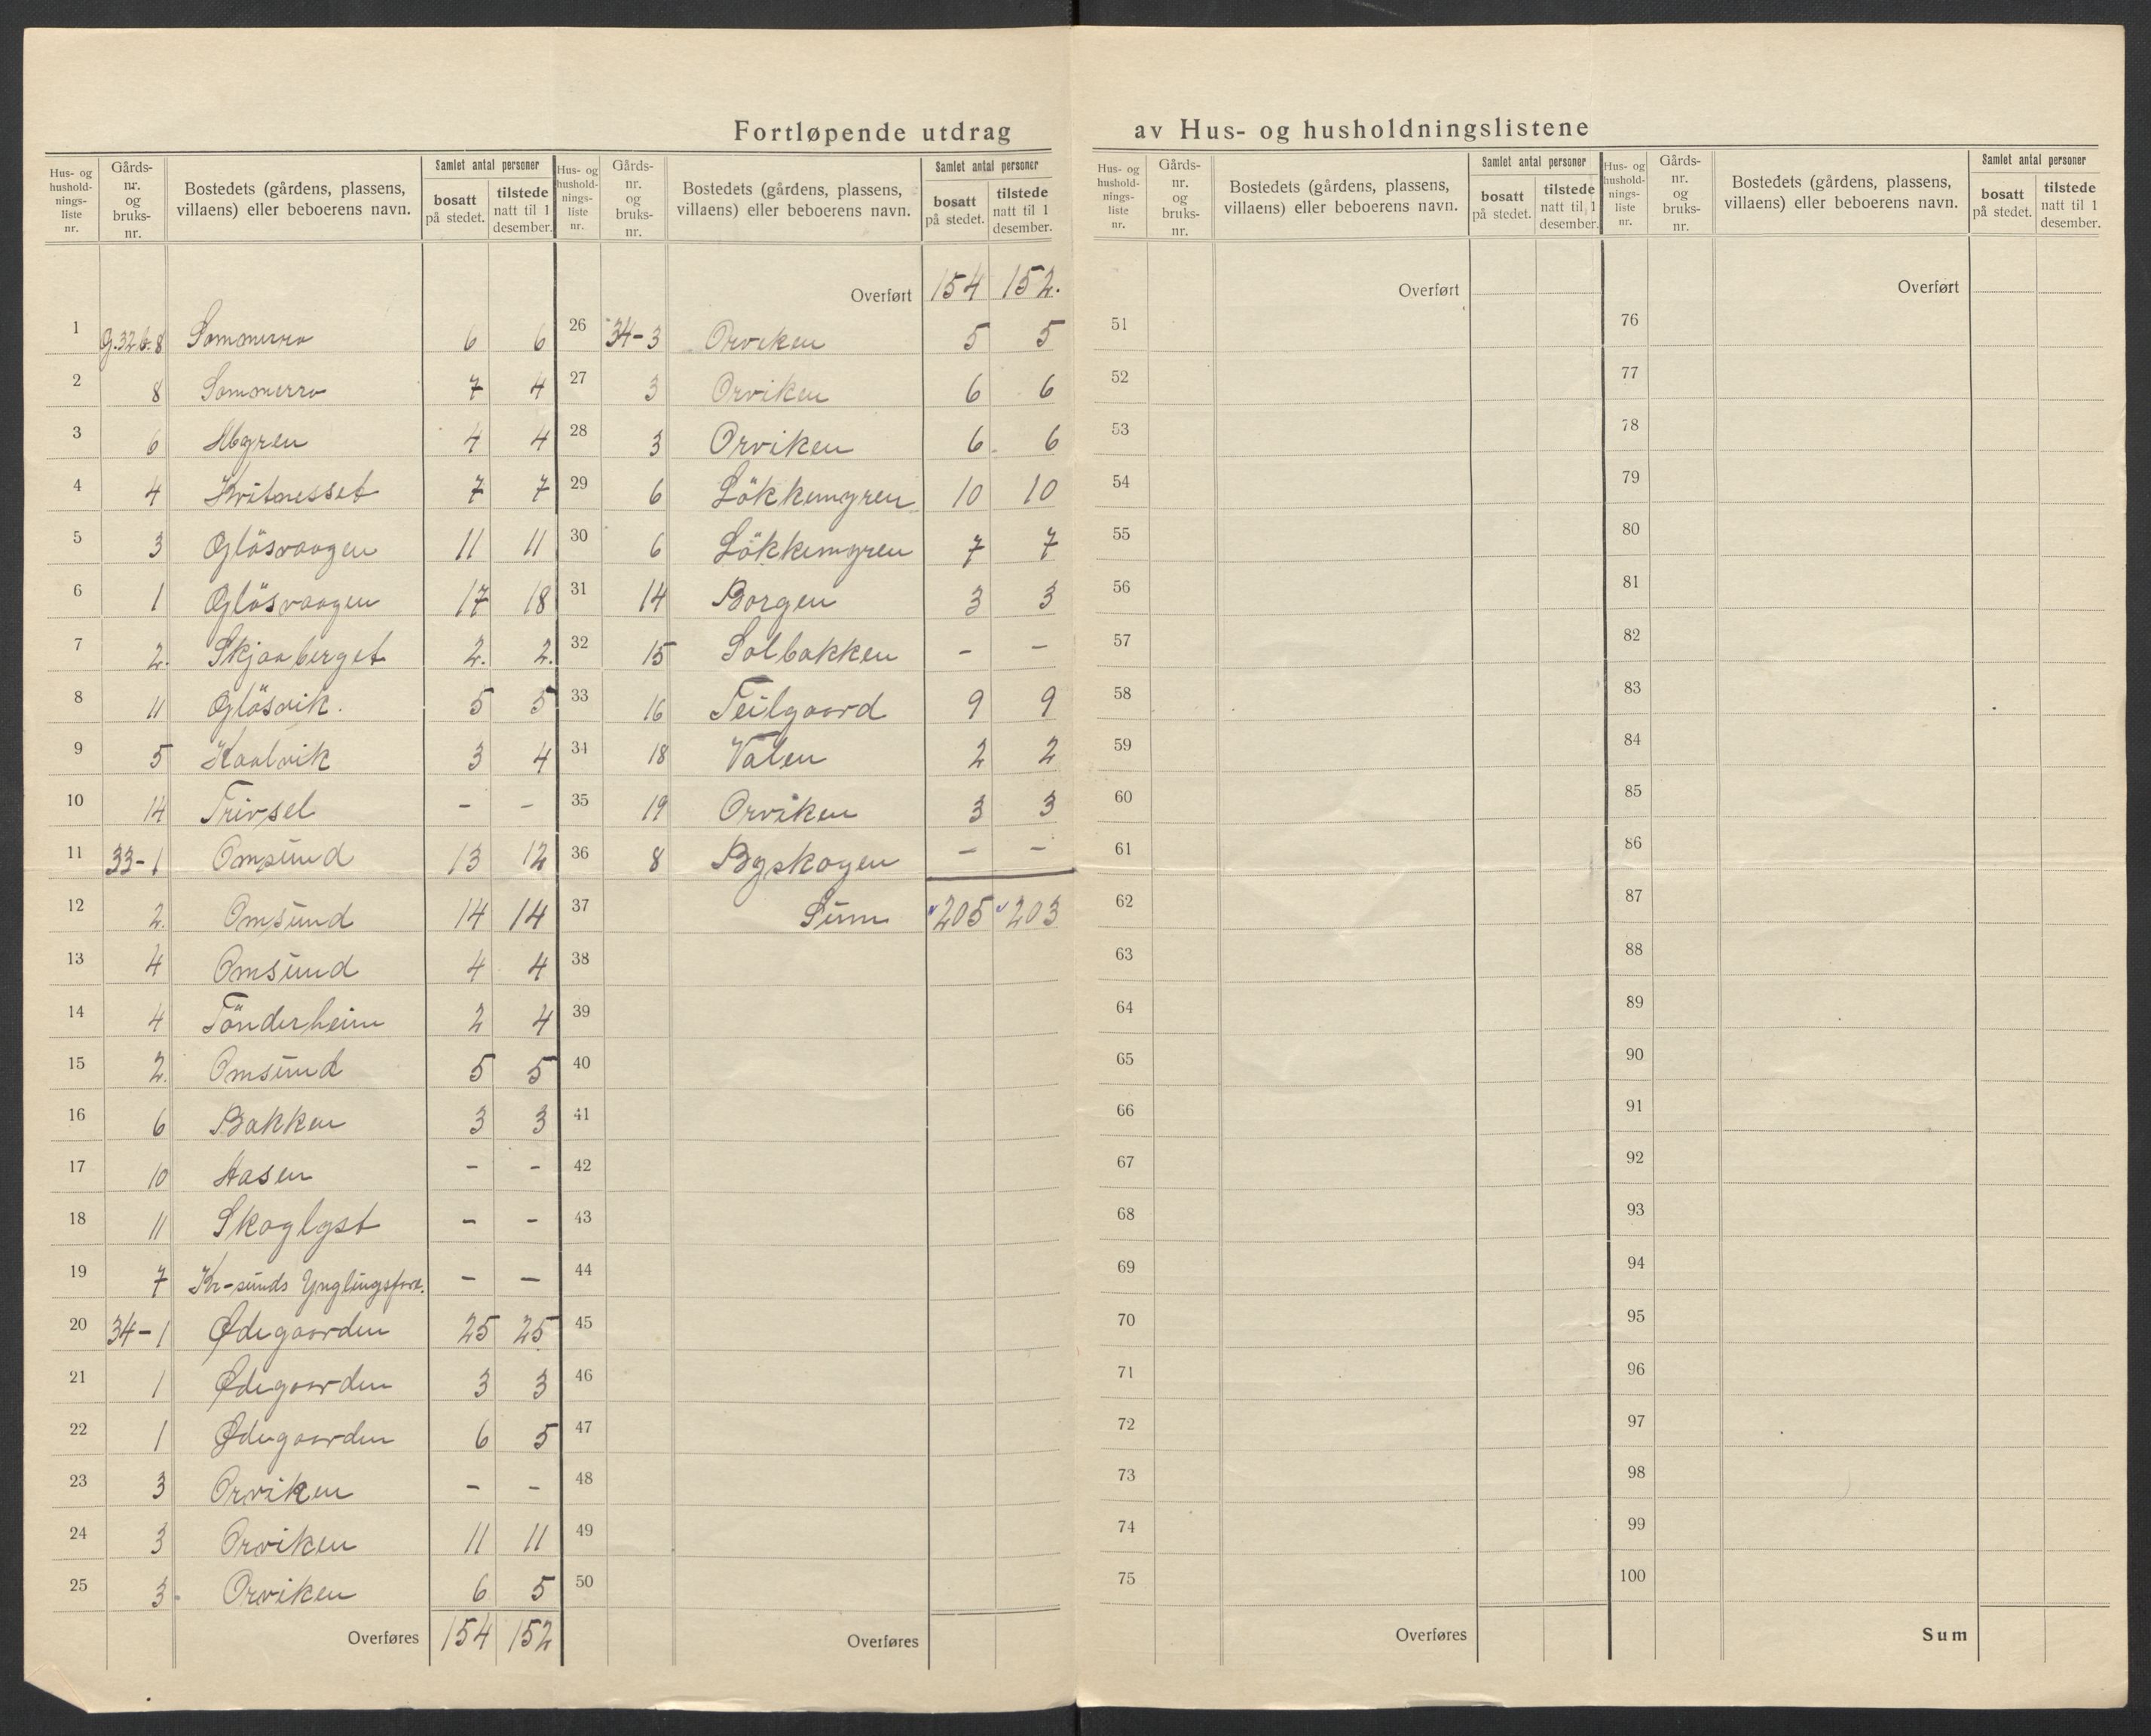 Fortløpende utdrag av Hus- og husholdningslistene
Hus- og hushold-nings-liste nr. Gårds-nr. og bruks-nr. Bostedets (gårdens, plassens, villaens) eller beboerens navn. Samlet antal personer bosatt på stedet. tilstede natt til 1 desember.
1 G.32 b.8 Sommerro 6 6
2 8 Sommerro 7 4
3 6 Mgren 4 4
4 4 Kvitnesset 7 7
5 3 Glösvaagen 11 11
6 1 Glösvaagen 17 18
7 2. Skjaaberget 2. 2.
8 11 Glösvik. 5 5
9 5 Kaalvik 3 4
10 14 Trivsel - -
11 33-1 Omsund 13 12
12 2. Omsund 14 14
13 4 Omsund 4 4
14 4 Tönderheim 2 4
15 2. Omsund 5 5
16 6 Bakken 3 3
17 10 Aasen - -
18 11 Skoglyst - -
19 7 Kr-sunds Ynglingsfore. - -
20 34-1 Ødegaarden 25 25
21 1 Ødegaarden 3 3
22 1 Ødegaarden 6 5
23 3 Orviken - -
24 3 Orviken 11 11
25 3 Orviken 6 5
Overføres 154 152
Hus- og hushold-nings-liste nr. Gårds-nr. og bruks-nr. Bostedets (gårdens, plassens, villaens) eller beboerens navn. Samlet antal personer bosatt på stedet. tilstede natt til 1 desember.
Overført 154 152.
26 34-3 Orviken 5 5
27 3 Orviken 6 6
28 3 Orviken 6 6
29 6 Lökkemyren 10 10
30 6 Lökkemyren 7 7
31 14 Borgen 3 3
32 15 Solbakken - -
33 16 Teilgaard 9 9
34 18 Valen 2 2
35 19 Orviken 3 3
36 8 Byskogen - -
37 Sum 205 203
38
39
40
41
42
43
44
45
46
47
48
49
50
Overføres
Hus- og hushold-nings-liste nr. Gårds-nr. og bruks-nr. Bostedets (gårdens, plassens, villaens) eller beboerens navn. Samlet antal personer bosatt på stedet. tilstede natt til 1 desember.
Overført
51
52
53
54
55
56
57
58
59
60
61
62
63
64
65
66
67
68
69
70
71
72
73
74
75
Overføres
Hus- og hushold-nings-liste nr. Gårds-nr. og bruks-nr. Bostedets (gårdens, plassens, villaens) eller beboerens navn. Samlet antal personer bosatt på stedet. tilstede natt til 1 desember.
Overført
76
77
78
79
80
81
82
83
84
85
86
87
88
89
90
91
92
93
94
95
96
97
98
99
100
Sum